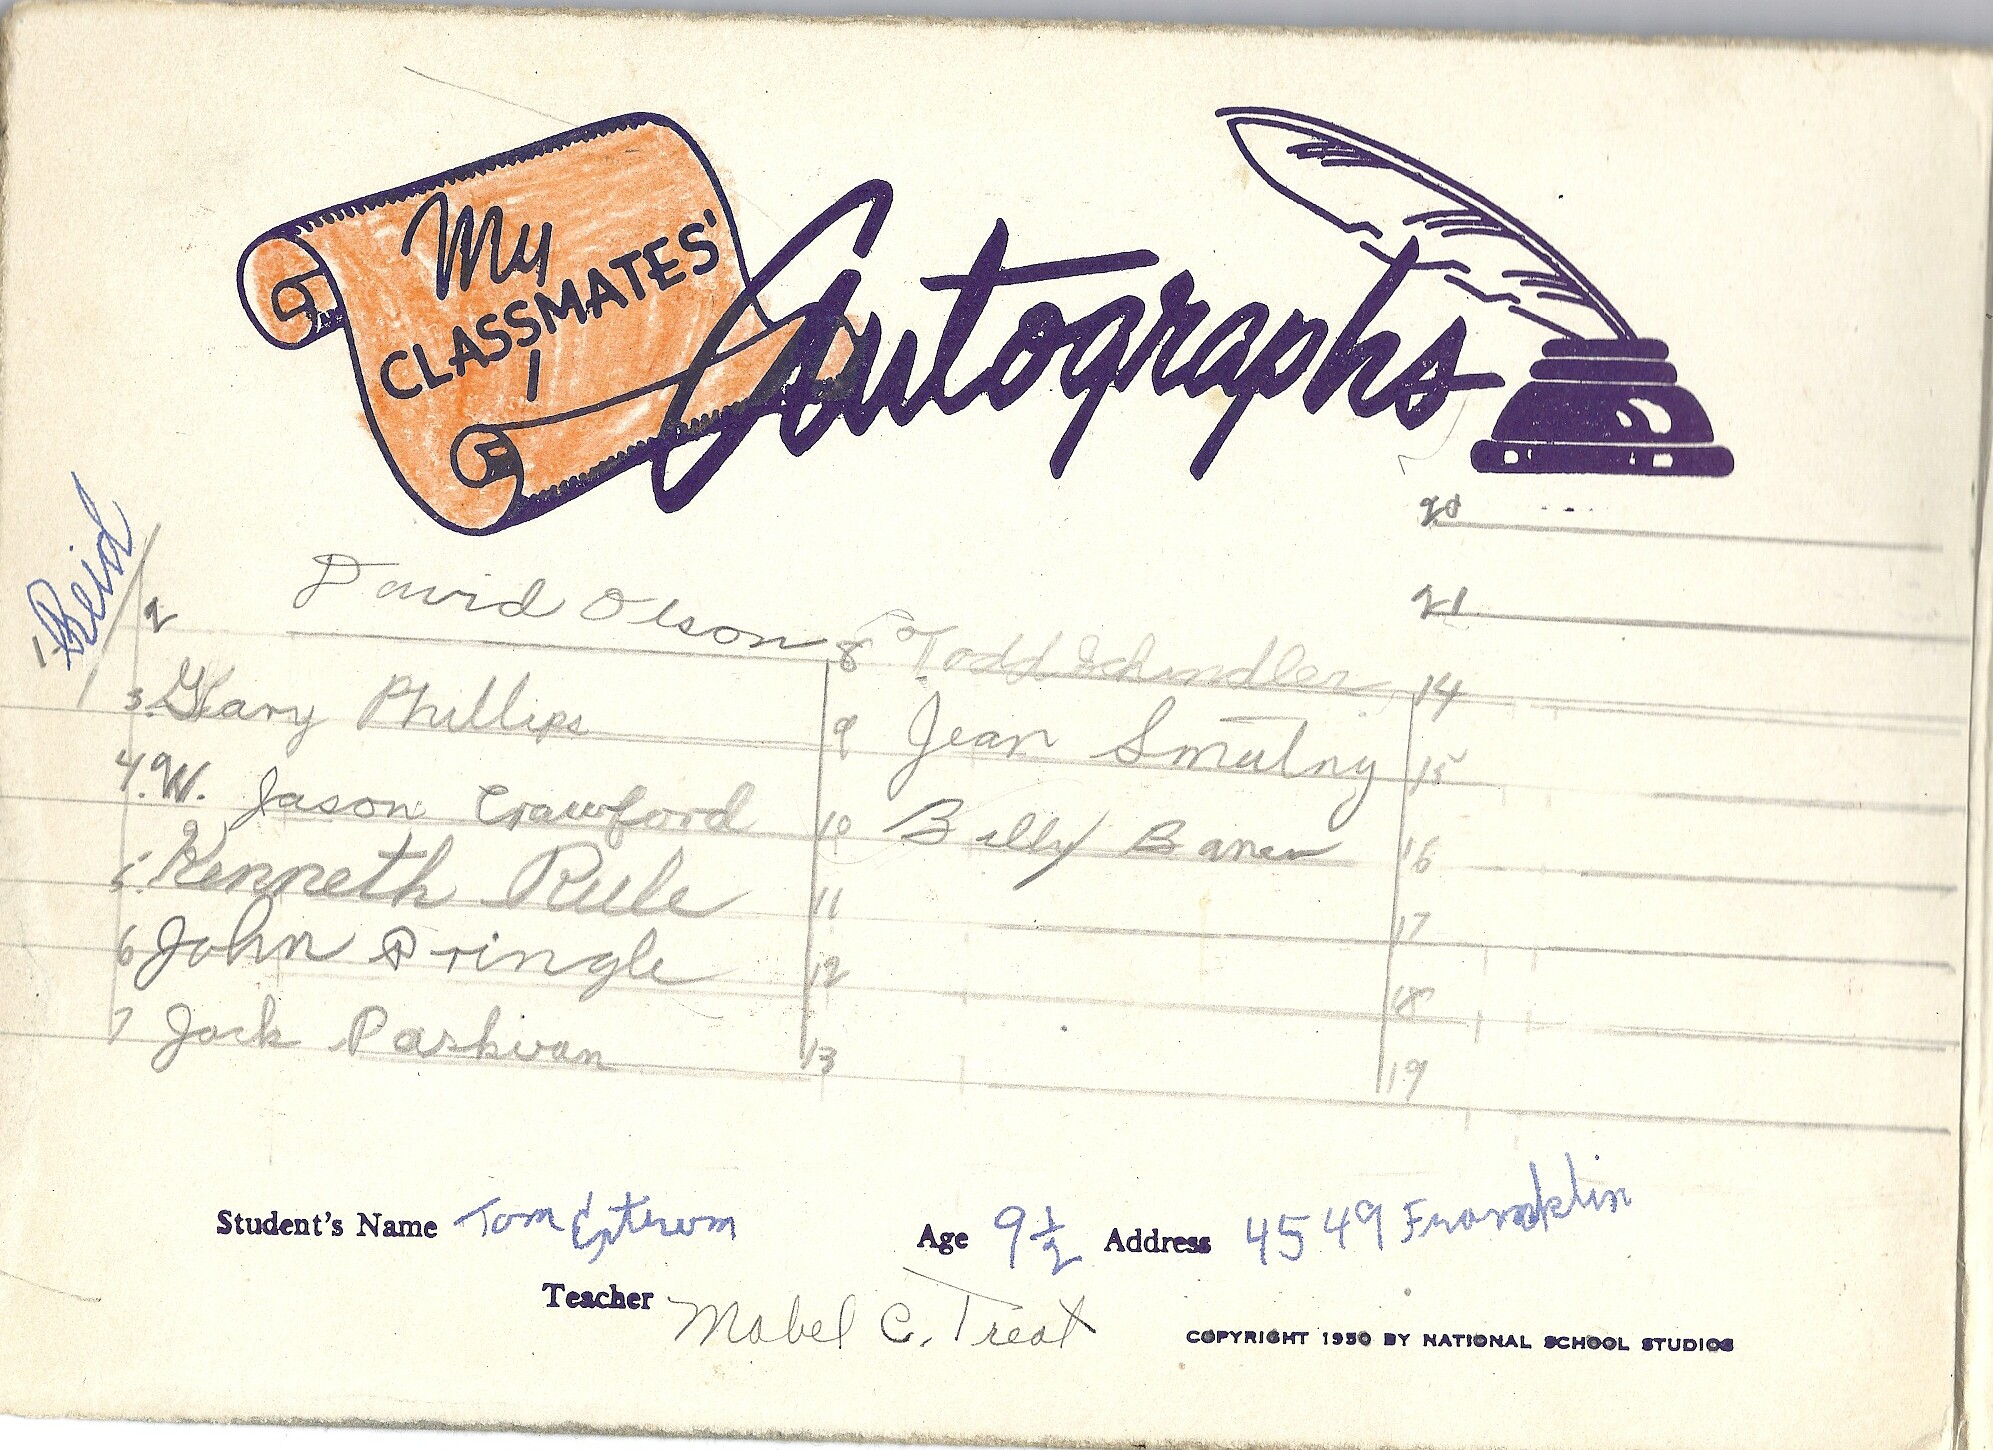 My
CLASSMATES'
1
Autographs
20
21
1. Reid
2 David Olson
3. Gary Phillips
4. W. Jason Crawford
5. Kenneth Rule
6 John Pringle
7 Jack
8 Todd Schindler
9 Jean Smulny
10 Billy
11
12
13
14
15
16
17
18
19
Student's Name Tom
Age 9 1/2 Address 4549 Franklin
Teacher Mabel C. Treat
COPYRIGHT 1950 BY NATIONAL SCHOOL STUDIOS